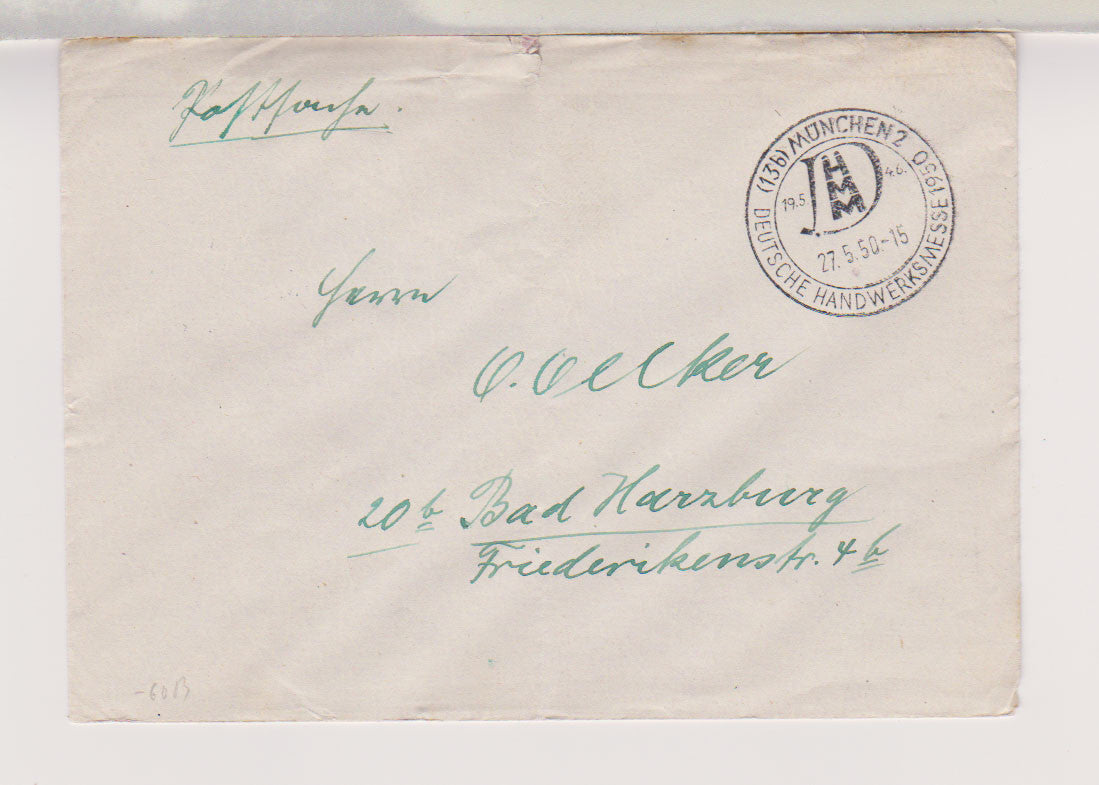 Postsache.
(13b) MÜNCHEN 2
DHMM
19.5. 4.6.
27.5.50.-15
DEUTSCHE HANDWERKSMESSE 1950
Herrn
O. Oelker
20b Bad Harzburg
Friederikenstr. 4b